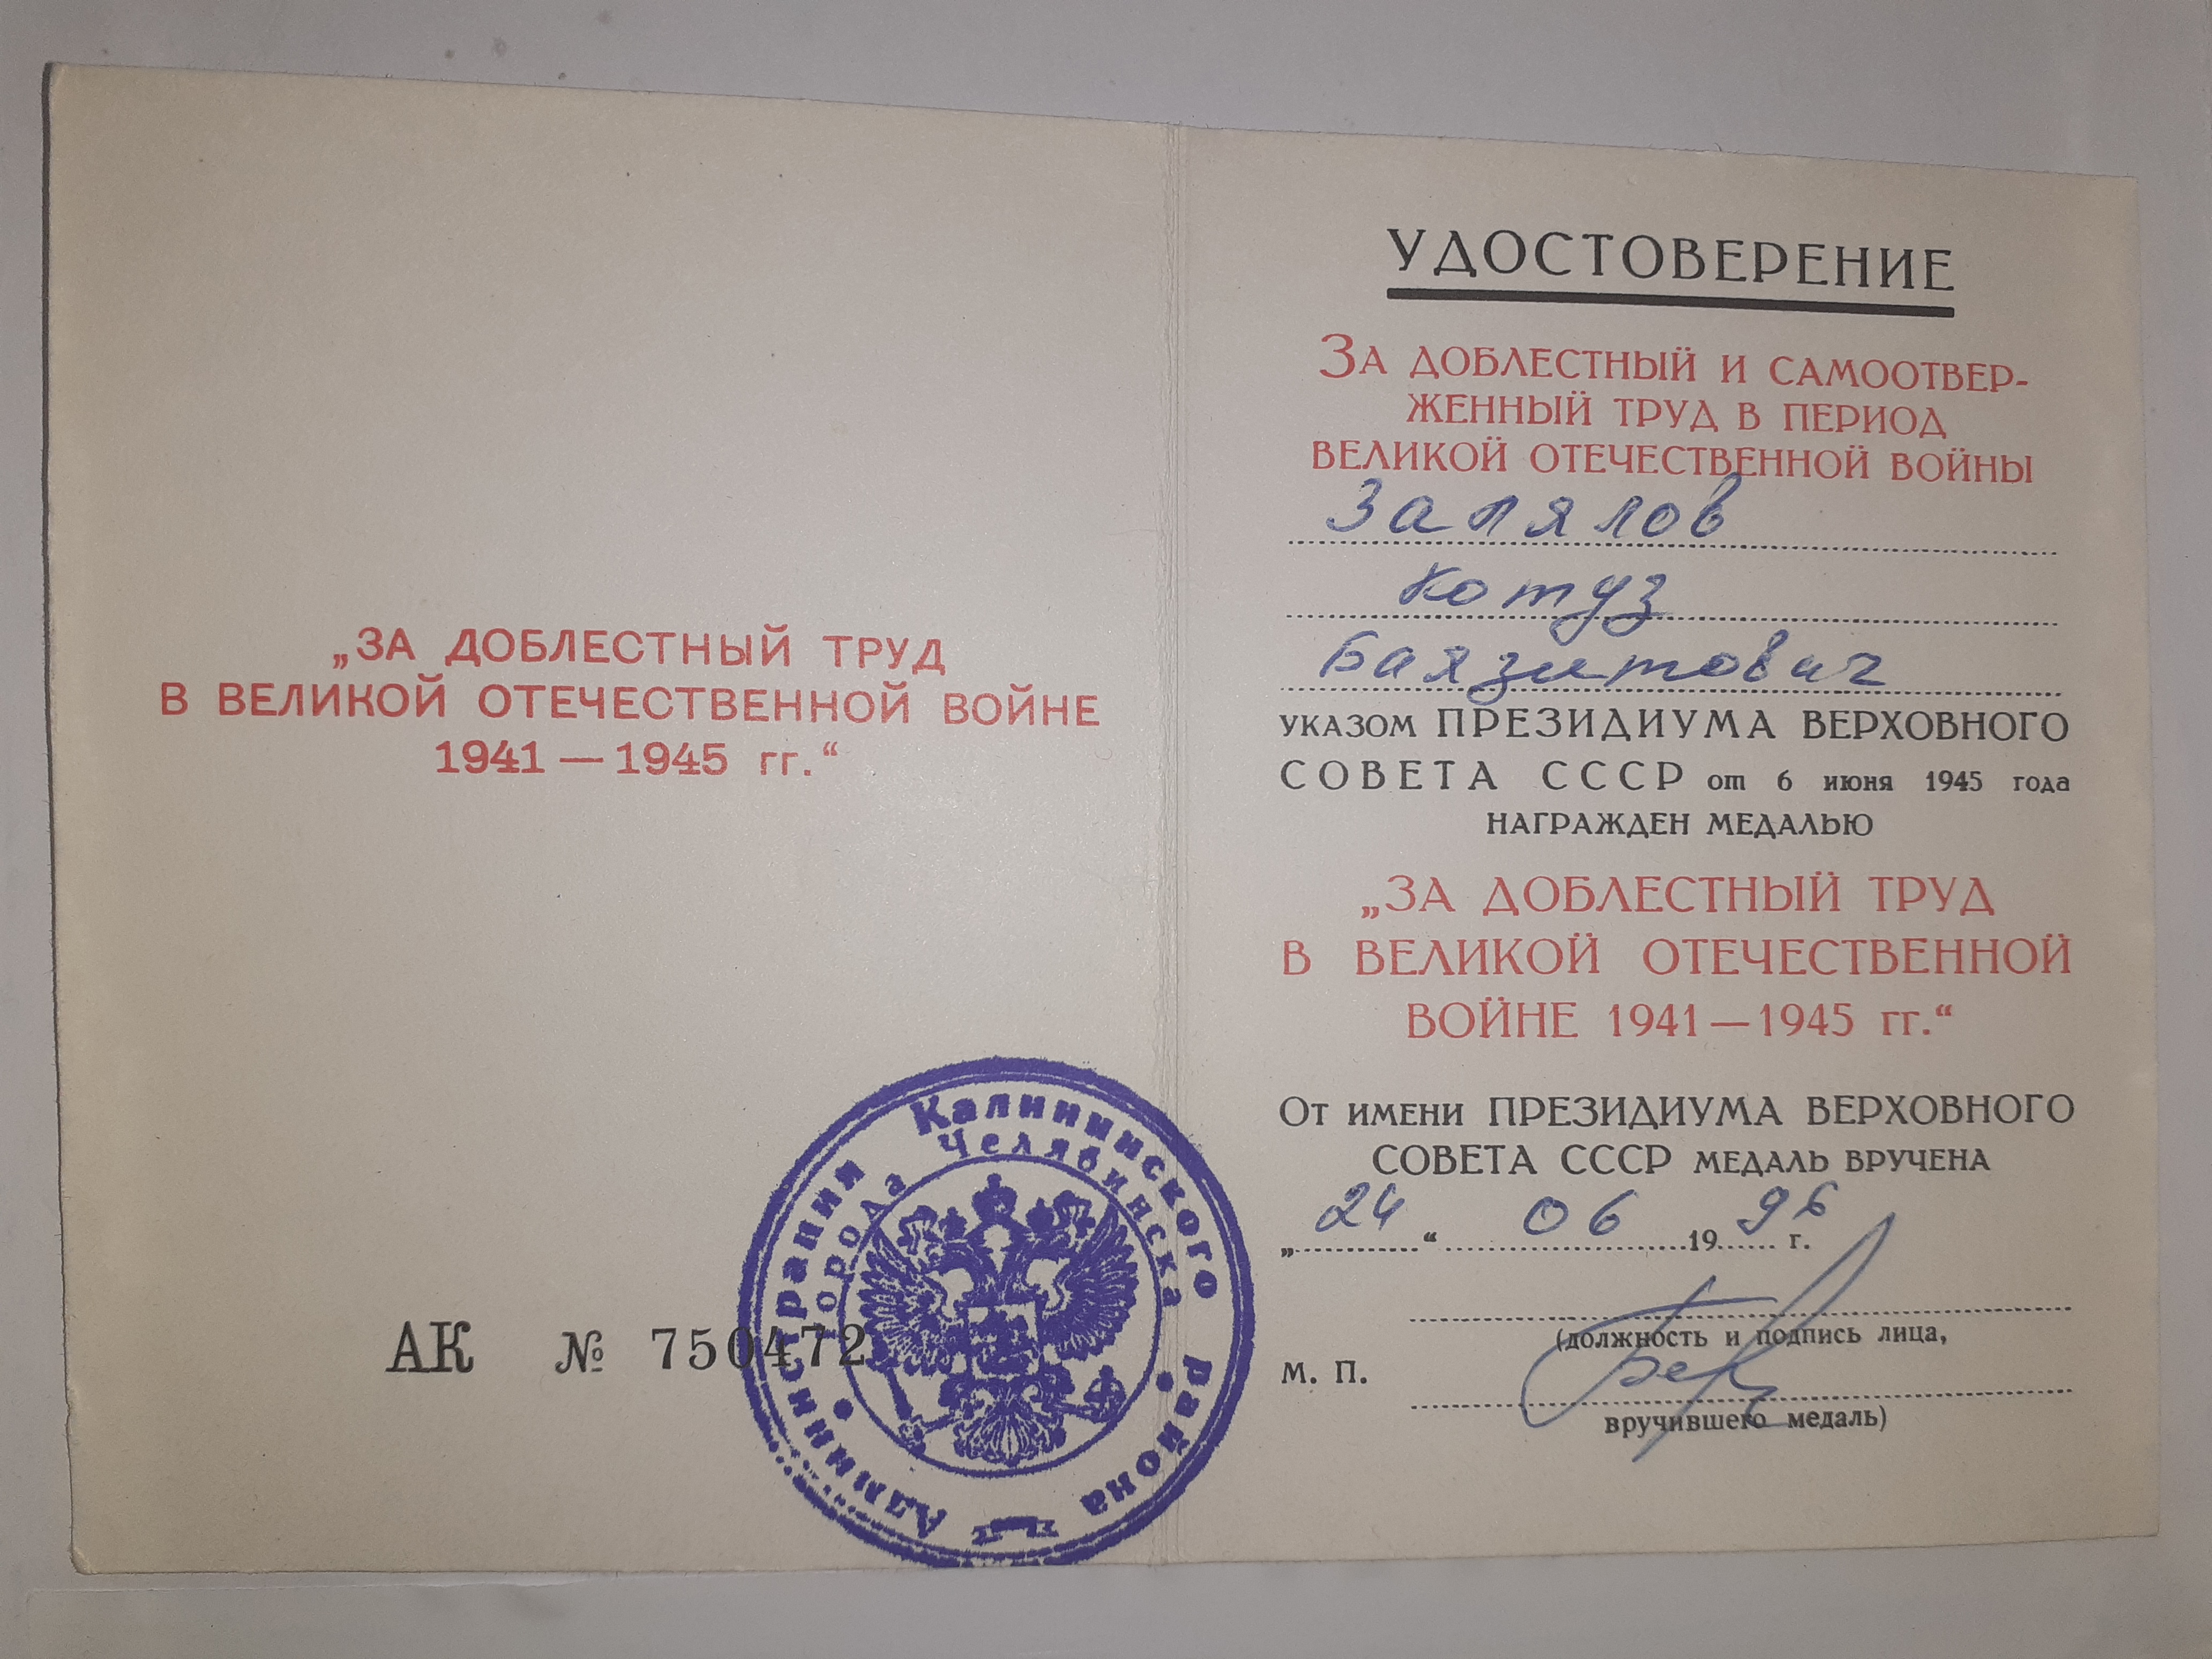 „ЗА ДОБЛЕСТНЫЙ ТРУД
В ВЕЛИКОЙ ОТЕЧЕСТВЕННОЙ ВОЙНЕ
1941 — 1945 гг.“
АК № 750472
Администрация Калининского района
города Челябинска
УДОСТОВЕРЕНИЕ
ЗА ДОБЛЕСТНЫЙ И САМООТВЕР-
ЖЕННЫЙ ТРУД В ПЕРИОД
ВЕЛИКОЙ ОТЕЧЕСТВЕННОЙ ВОЙНЫ
Залялов
Котуз
Баязитович
УКАЗОМ ПРЕЗИДИУМА ВЕРХОВНОГО
СОВЕТА СССР от 6 июня 1945 года
НАГРАЖДЕН МЕДАЛЬЮ
„ЗА ДОБЛЕСТНЫЙ ТРУД
В ВЕЛИКОЙ ОТЕЧЕСТВЕННОЙ
ВОЙНЕ 1941 — 1945 гг.“
ОТ ИМЕНИ ПРЕЗИДИУМА ВЕРХОВНОГО
СОВЕТА СССР МЕДАЛЬ ВРУЧЕНА
„24“ 06 1996 г.
(должность и подпись лица,
М. П.
вручившего медаль)